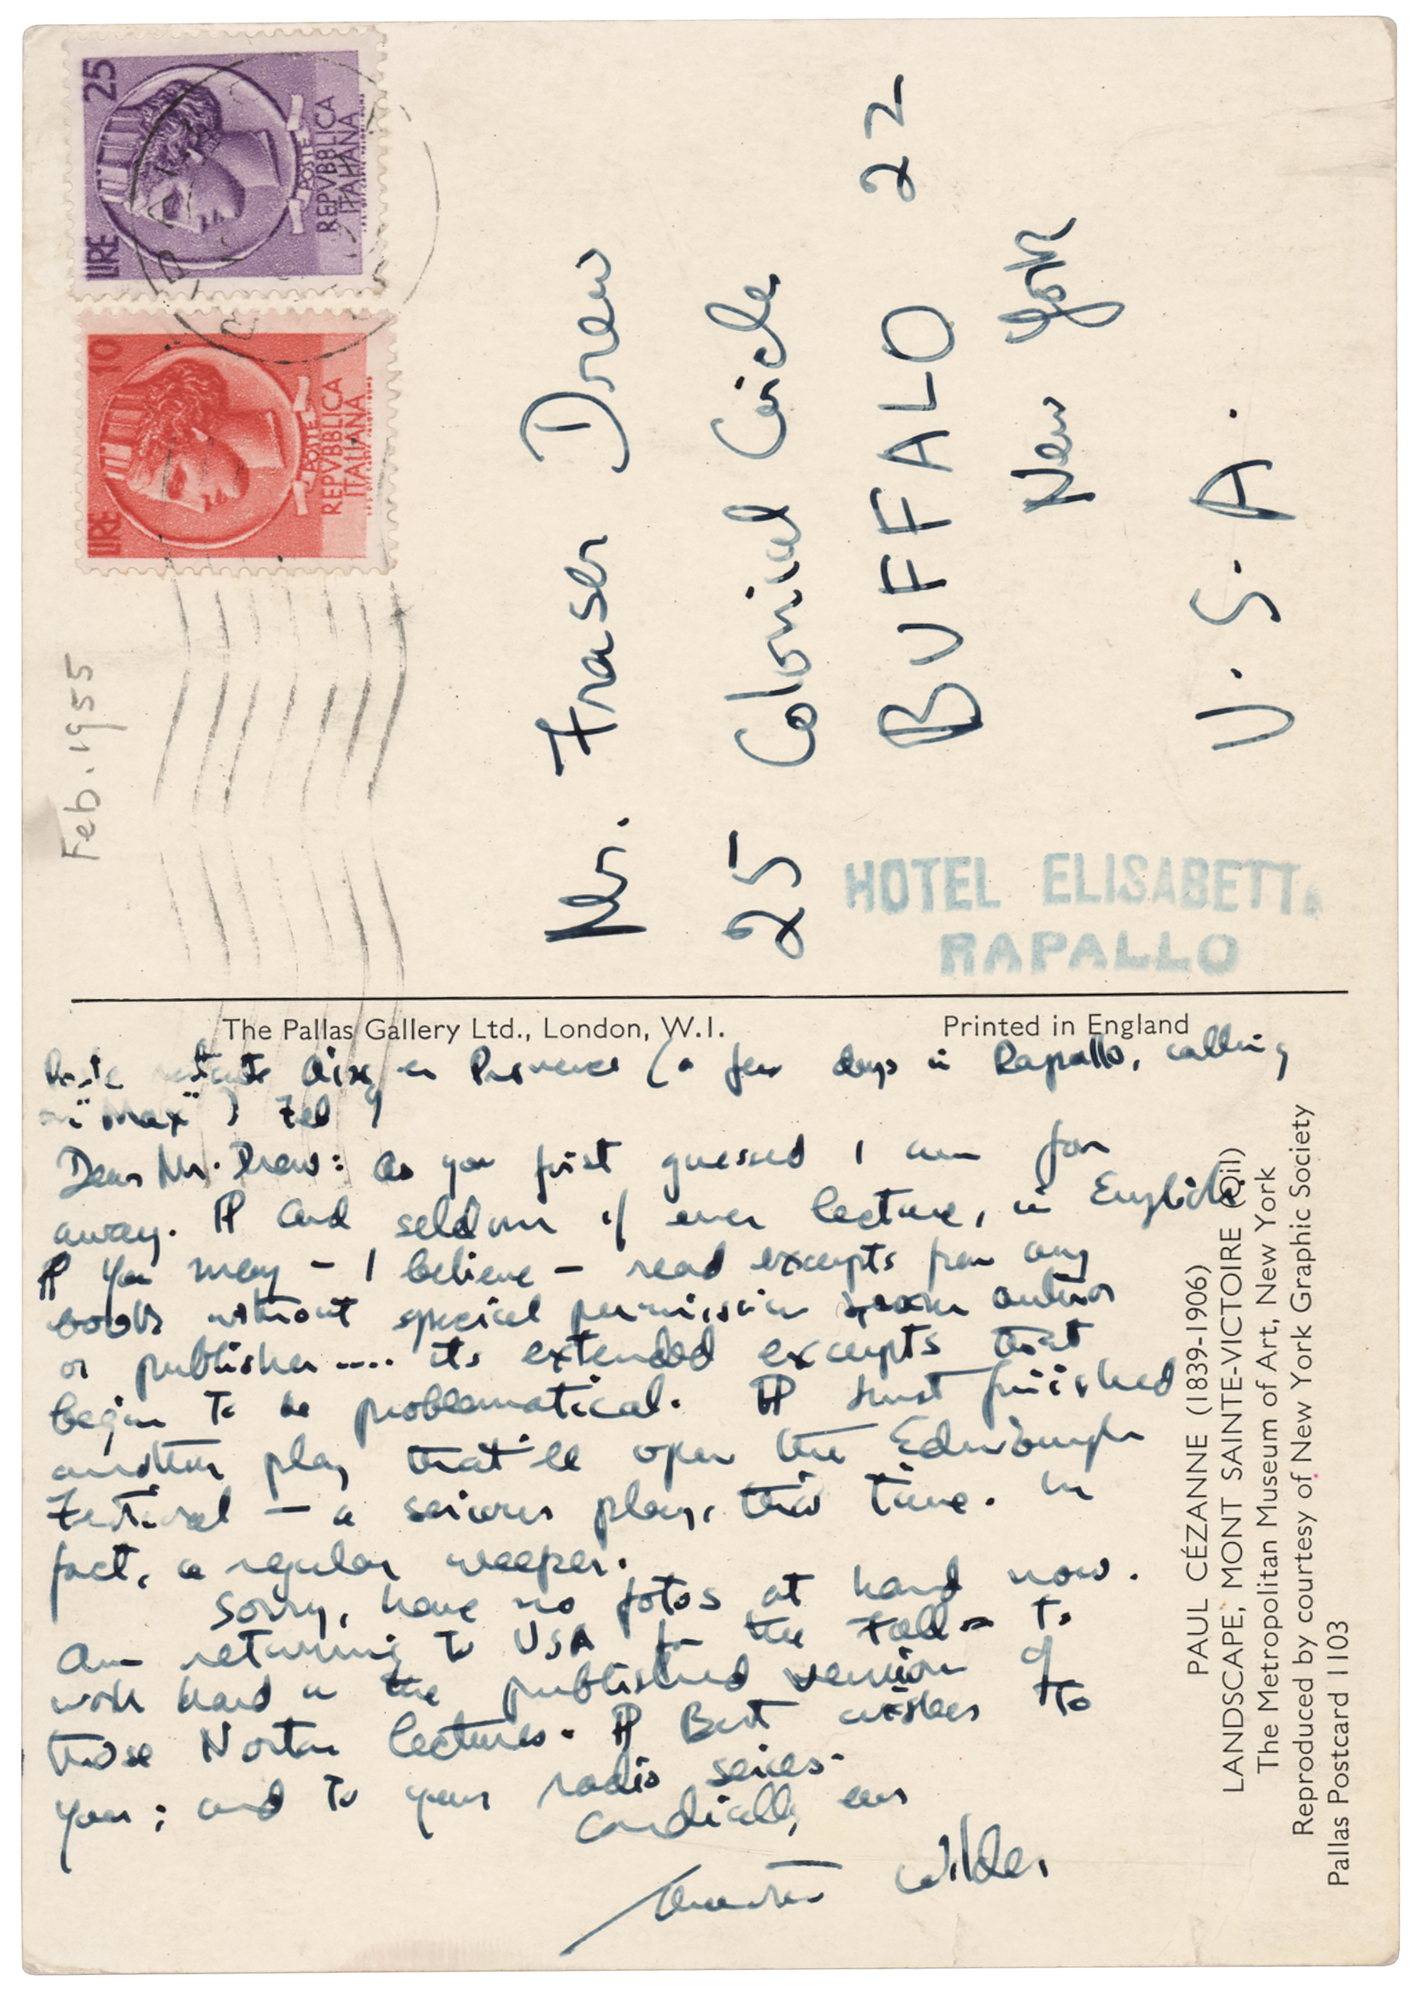 LIRE 25
POSTE
REPVBBLICA
ITALIANA
LIRE 10
POSTE
REPVBBLICA
ITALIANA
Feb. 1955
Mr. Fraser Drew
25 Colonial Circle
BUFFALO 22
New York
U. S. A.
HOTEL ELISABETTA
RAPALLO
The Pallas Gallery Ltd., London, W.I.
Printed in England
Poste restante Aix en Provence (a few days in Rapallo, calling
on "Max") Feb 9
Dear Mr. Drew: As you first guessed I am far
away. ¶ And seldom if ever lecture, in English.
¶ You may – I believe – read excerpts from any
book without special permission from author
or publisher.... its extended excerpts that
begin to be problematical. ¶ Just finished
another play that'll open the Edinburgh
Festival – a serious play, this time. In
fact, a regular weeper.
Sorry, have no fotos at hand now.
Am returning to USA for the Fall – to
work hard on the published version of
those Norton lectures. ¶ Best wishes to
you; and to your radio series.
Cordially ever
Thornton Wilder
PAUL CÉZANNE (1839-1906)
LANDSCAPE, MONT SAINTE-VICTOIRE (Oil)
The Metropolitan Museum of Art, New York
Reproduced by courtesy of New York Graphic Society
Pallas Postcard 1103